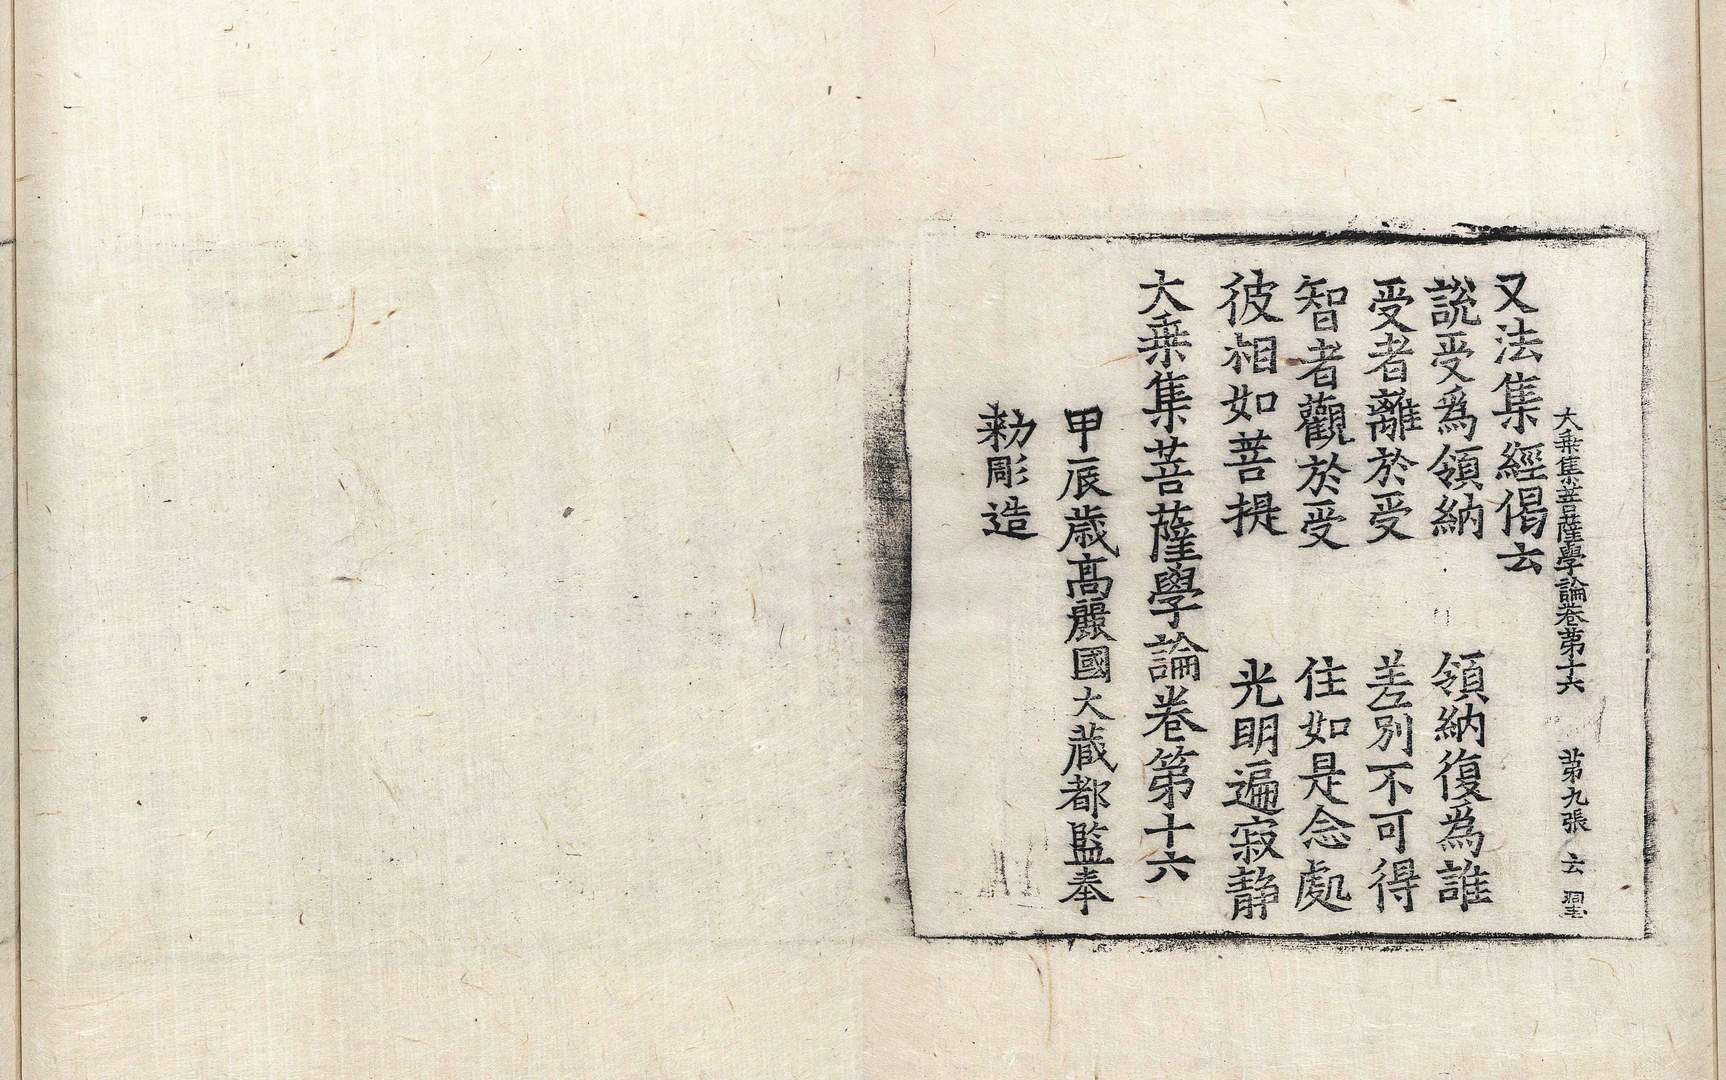 大乗集菩薩學論卷苐十六　苐九張　云
又法集經偈云
說受爲領納　領納復爲誰
受者離於受　差別不可得
智者觀於受　住如是念處
彼相如菩提　光明遍寂静
大乗集菩薩學論卷第十六
甲辰歳高麗國大藏都監奉
勑彫造